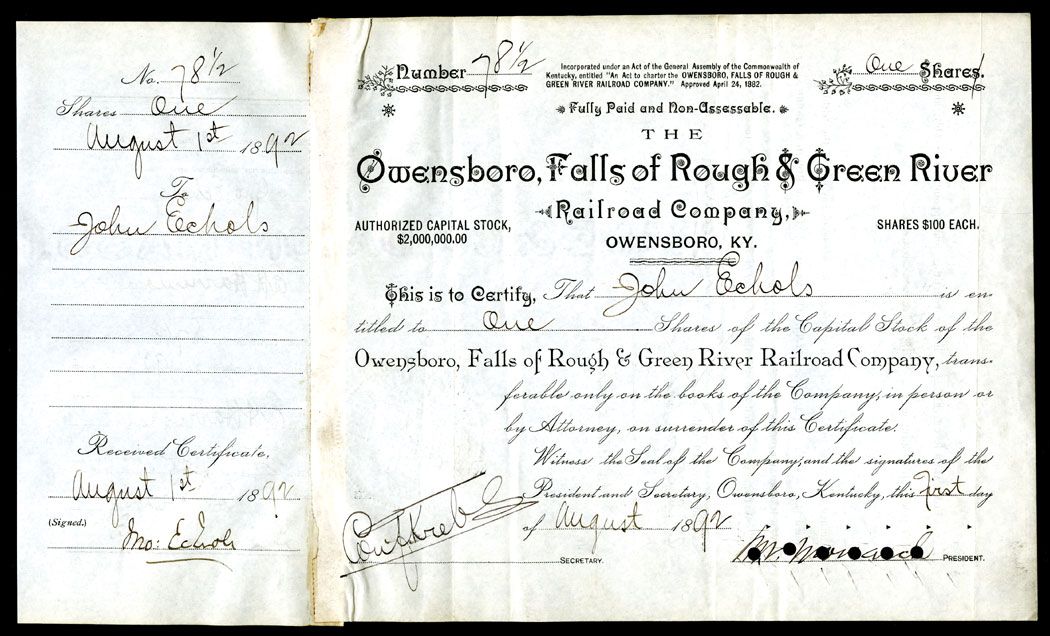 No. 78 1/2
Shares One
August 1st 1892
To
John Echols
Received Certificate,
August 1st 1892
(Signed.)
Jno: Echols
Number 78 1/2
Incorporated under an Act of the General Assembly of the Commonwealth of
Kentucky, entitled "An Act to charter the OWENSBORO, FALLS OF ROUGH &
GREEN RIVER RAILROAD COMPANY." Approved April 24, 1882.
One Shares.
Fully Paid and Non-Assessable.
THE
Owensboro, Falls of Rough & Green River
Railroad Company,
AUTHORIZED CAPITAL STOCK,
$2,000,000.00
SHARES $100 EACH.
OWENSBORO, KY.
This is to Certify, That John Echols is en-
titled to One Shares of the Capital Stock of the
Owensboro, Falls of Rough & Green River Railroad Company, trans-
ferable only on the books of the Company, in person or
by Attorney, on surrender of this Certificate.
Witness the Seal of the Company, and the signatures of the
President and Secretary, Owensboro, Kentucky, this First day
of August 1892
SECRETARY.
PRESIDENT.